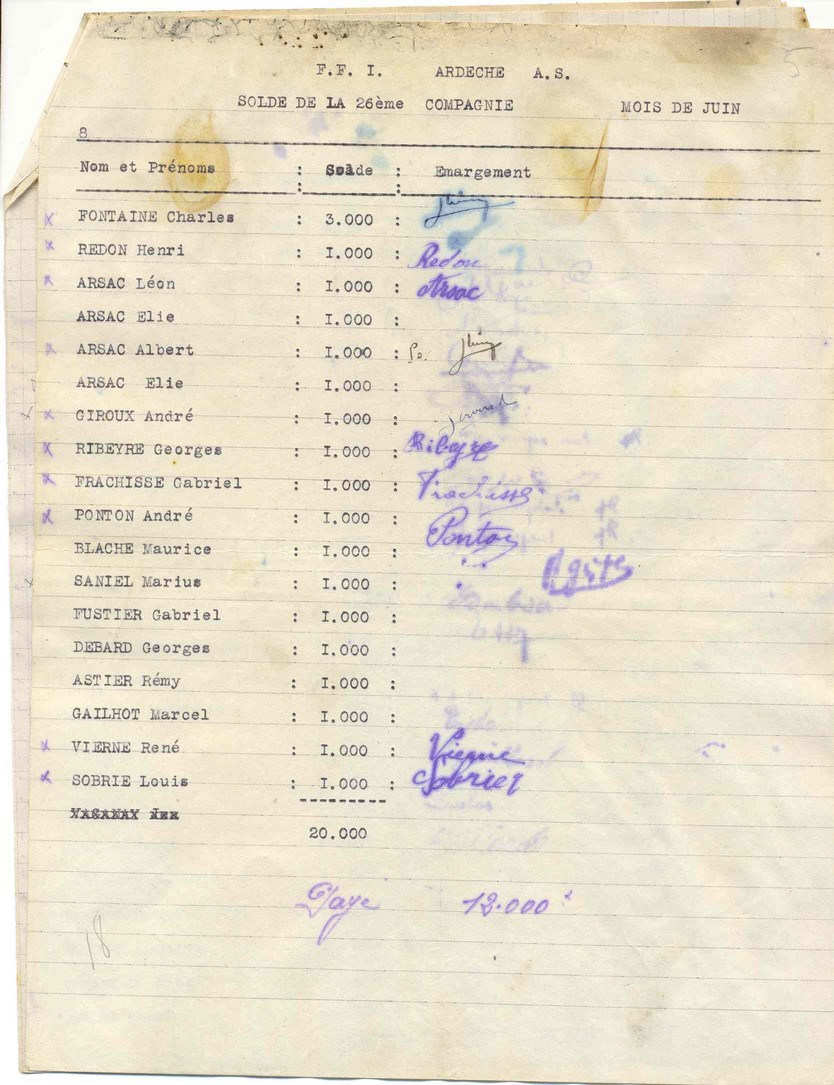 5
F.F. I. ARDECHE A.S.
SOLDE DE LA 26ème COMPAGNIE MOIS DE JUIN
8
Nom et Prénoms : Solde : Emargement
: :
x FONTAINE Charles : 3.000 :
x REDON Henri : I.000 : Redon
x ARSAC Léon : I.000 : Arsac
ARSAC Elie : I.000 :
x ARSAC Albert : I.000 :
ARSAC Elie : I.000 :
x GIROUX André : I.000 :
x RIBEYRE Georges : I.000 : Ribeyre
x FRACHISSE Gabriel : I.000 : Frachisse
x PONTON André : I.000 : Ponton
BLACHE Maurice : I.000 :
SANIEL Marius : I.000 :
FUSTIER Gabriel : I.000 :
DEBARD Georges : I.000 :
ASTIER Rémy : I.000 :
GAILHOT Marcel : I.000 :
x VIERNE René : I.000 : Vierne
x SOBRIE Louis : I.000 : Sobrier
----------
20.000
Payé 12.000
18